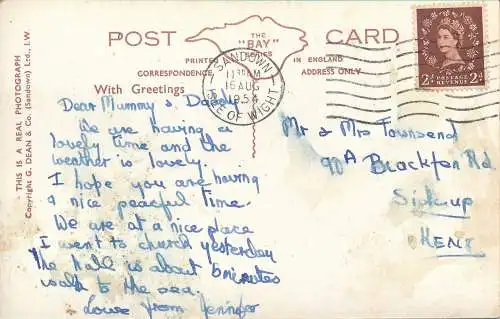 POST CARD
THE
"BAY"
SERIES
PRINTED IN ENGLAND
CORRESPONDENCE ADDRESS ONLY
With Greetings
THIS IS A REAL PHOTOGRAPH
Copyright G. DEAN & Co. (Sandown) Ltd., I.W.
SANDOWN
16 AUG
1954
ISLE OF WIGHT
2D POSTAGE REVENUE 2D
Dear Mummy & Daddy.
We are having a
lovely time and the
weather is lovely.
I hope you are having
a nice peaceful time.
We are at a nice place
I went to church yesterday
the hall is about 5 minutes
walk to the sea.
Love from Jennifer
Mr & Mrs Townsend
90A Blackfen Rd
Sidcup
Kent